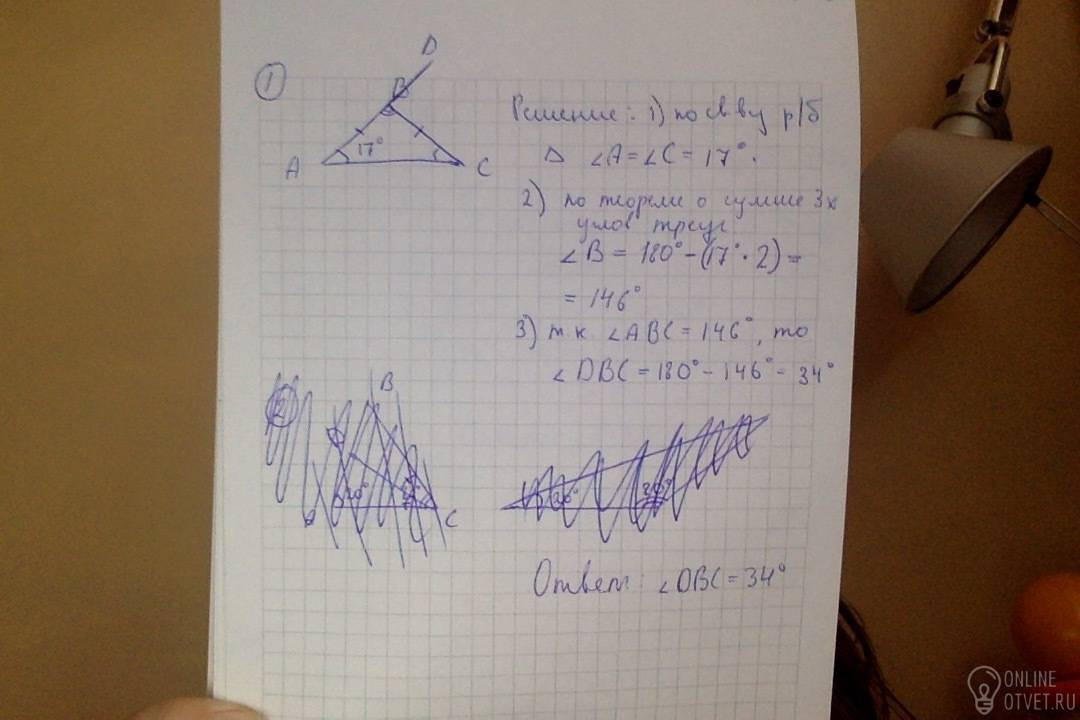 1
D
B
A
17°
C
Решение: 1) по св-ву р/б
Δ ∠A = ∠C = 17°.
2) по теореме о сумме 3х
углов треуг
∠B = 180° - (17° · 2) =
= 146°
3) т.к. ∠ABC = 146°, то
∠DBC = 180° - 146° = 34°
B
C
Ответ: ∠DBC = 34°
ONLINE
OTVET.RU